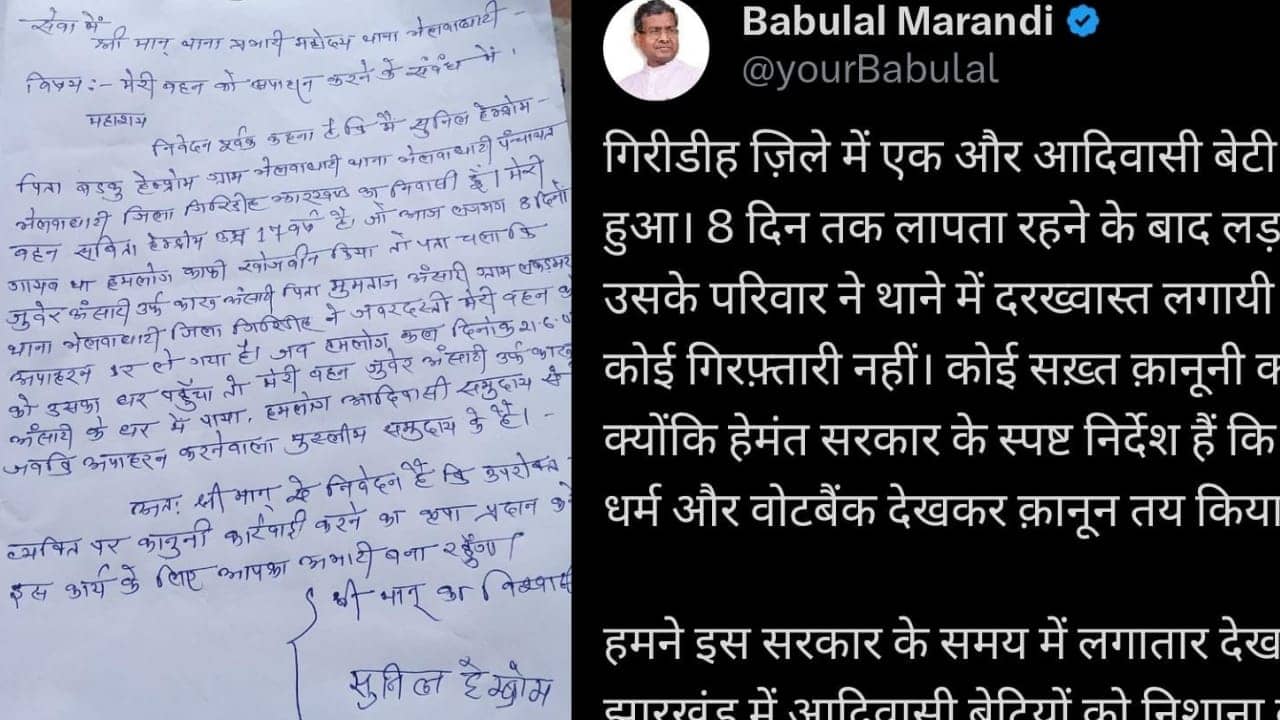 सेवा में
श्री मान् थाना प्रभारी महोदय थाना भेलवाघाटी -
विषय :- मेरी बहन को अपाहरन करने के संबंध में ।
महाशय
निवेदन पूर्वक कहना है कि मैं सुनिल हेम्ब्रोम -
पिता बड़कु हेम्ब्रोम ग्राम भेलवाघाटी थाना भेलवाघाटी पंचायत
भेलवाघाटी जिला गिरिडीह झारखण्ड का निवासी हूँ। मेरी
बहन सबिता हेम्ब्रोम उम्र 17 वर्ष है, जो आज लगभग 8 दिनों
गायब था हमलोग काफी खोजबीन किया तो पता चला कि
जुबेर अंसारी उर्फ कारु अंसारी पिता मुमताज अंसारी ग्राम
थाना भेलवाघाटी जिला गिरिडीह ने जबरदस्ती मेरी बहन को
अपाहरन कर ले गया है। जब हमलोग कल दिनांक 21.6.
को उसका घर पहुँचा तो मेरी बहन जुबेर अंसारी उर्फ कारु
अंसारी के घर में पाया, हमलोग आदिवासी समुदाय से
जबकि अपाहरन करनेवाला मुस्लीम समुदाय के हैं। -
अतः श्री मान् से निवेदन है कि उपरोक्त -
व्यक्ति पर कानुनी कार्रवाही करने का कृपा प्रदान करें
इस कार्य के लिए आपका अभारी बना रहुँगा।
श्री मान् का विश्वासी
सुनिल हेम्ब्रोम
Babulal Marandi
@yourBabulal
गिरीडीह ज़िले में एक और आदिवासी बेटी
हुआ। 8 दिन तक लापता रहने के बाद लड़
उसके परिवार ने थाने में दरख्वास्त लगायी
कोई गिरफ़्तारी नहीं। कोई सख़्त क़ानूनी क
क्योंकि हेमंत सरकार के स्पष्ट निर्देश हैं कि
धर्म और वोटबैंक देखकर क़ानून तय किया
हमने इस सरकार के समय में लगातार देख
झारखंड में आदिवासी बेटियों को निशाना